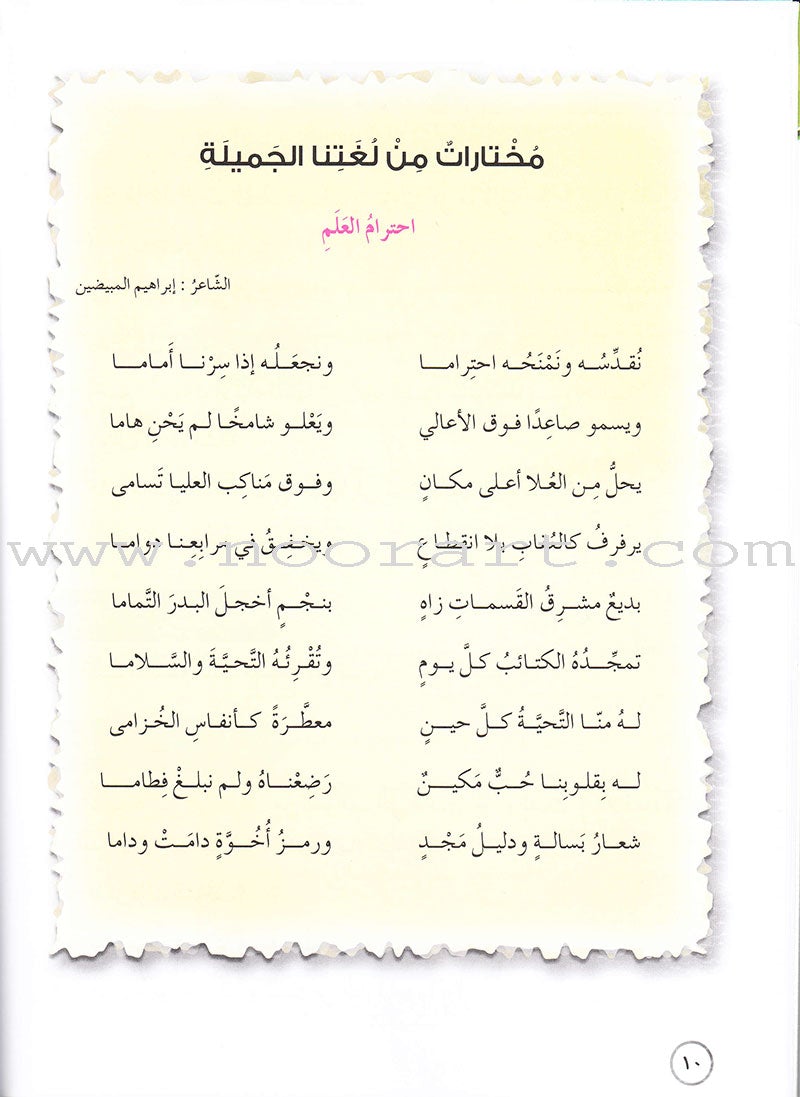 مُخْتاراتٌ مِنْ لُغَتِنا الجَميلَةِ
احترامُ العَلَمِ
الشّاعرُ : إبراهيم المبيضين
نُقـدِّسُــه ونَمْنَحُــه احتِرامــا ونجعَـلُـه إذا سِرْنــا أَمامــا
ويسمو صاعِدًا فـوق الأعالي ويَعْلـو شامخًـا لـم يَحْنِ هاما
يحلُّ مِـن العُـلا أعلى مكـانٍ وفـوق مَناكِب العليـا تَسامى
يرفرفُ كالعُقابِ بلا انقطـاعٍ ويخفِـقُ في مرابِعِنـا دوامـا
بديعٌ مشـرِقُ القَسمـاتِ زاهٍ بنجْـمٍ أخجـلَ البـدرَ التَّماما
تمجِّـدُهُ الكتائبُ كـلَّ يـومٍ وتُقْـرِئُـهُ التَّحيَّـةَ والسَّـلامـا
لـهُ منّـا التَّحيَّـةُ كـلَّ حيـنٍ معطَّـرَةً كـأنفـاسِ الخُـزامى
لـه بِقلـوبِنـا حُـبٌّ مَكيـنٌ رَضِعْنـاهُ ولـم نبلـغْ فِطامـا
شعـارُ بَسالـةٍ ودليـلُ مَجْـدٍ ورمـزُ أُخُـوَّةٍ دامَـتْ ودامـا
www.noorart.com
١٠